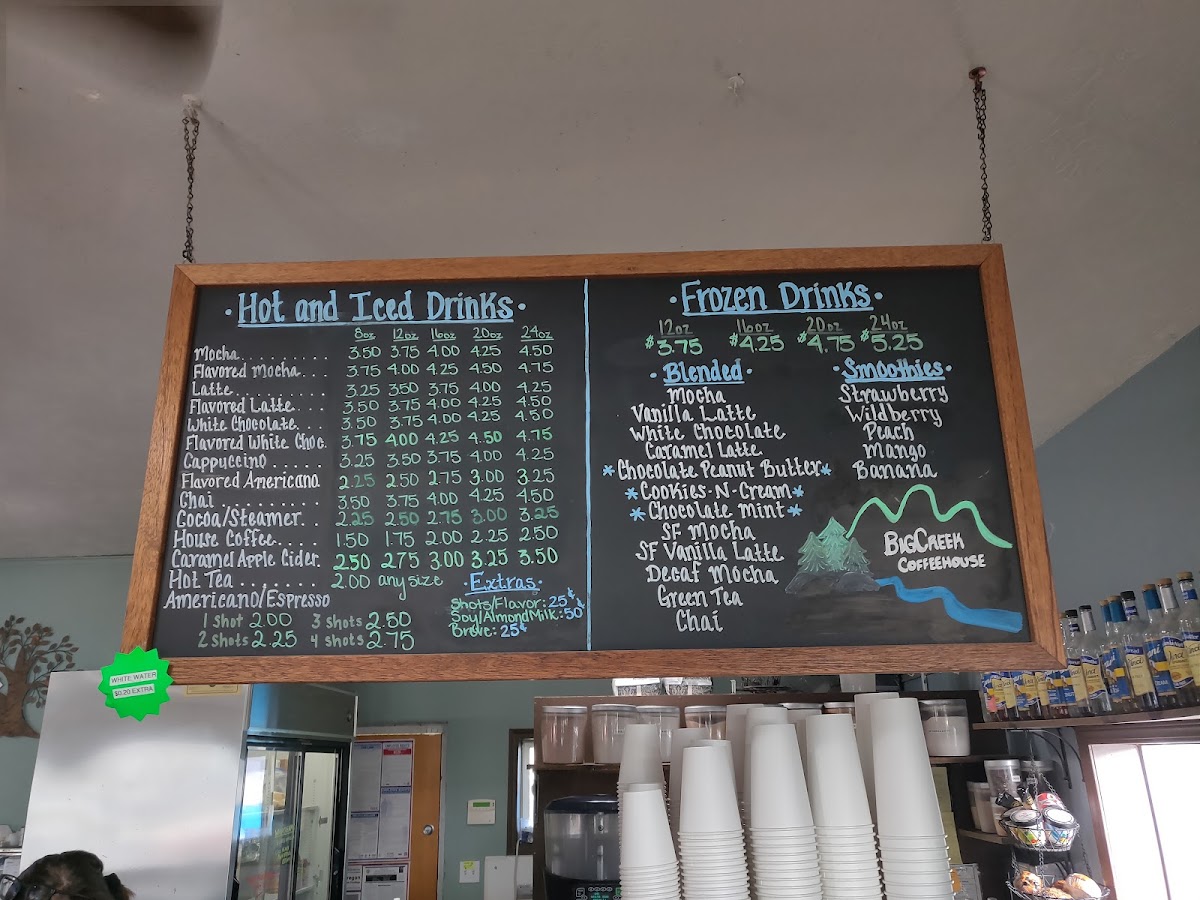 · Hot and Iced Drinks ·
8oz 12oz 16oz 20oz 24oz
Mocha......... 3.50 3.75 4.00 4.25 4.50
Flavored Mocha... 3.75 4.00 4.25 4.50 4.75
Latte.......... 3.25 3.50 3.75 4.00 4.25
Flavored Latte.... 3.50 3.75 4.00 4.25 4.50
White Chocolate... 3.50 3.75 4.00 4.25 4.50
Flavored White Choc. 3.75 4.00 4.25 4.50 4.75
Cappuccino...... 3.25 3.50 3.75 4.00 4.25
Flavored Americana 2.25 2.50 2.75 3.00 3.25
Chai........... 3.50 3.75 4.00 4.25 4.50
Cocoa/Steamer.. 2.25 2.50 2.75 3.00 3.25
House Coffee.... 1.50 1.75 2.00 2.25 2.50
Caramel Apple Cider. 2.50 2.75 3.00 3.25 3.50
Hot Tea........ 2.00 any size
Americano/Espresso
1 shot 2.00 3 shots 2.50
2 shots 2.25 4 shots 2.75
· Extras ·
Shots/Flavor: 25¢
Soy/Almond Milk: 50¢
Breve: 25¢
· Frozen Drinks ·
12oz 16oz 20oz 24oz
$3.75 $4.25 $4.75 $5.25
· Blended ·
Mocha
Vanilla Latte
White Chocolate
Caramel Latte
*Chocolate Peanut Butter*
*Cookies-N-Cream*
*Chocolate Mint*
SF Mocha
SF Vanilla Latte
Decaf Mocha
Green Tea
Chai
· Smoothies ·
Strawberry
Wildberry
Peach
Mango
Banana
BigCreek
Coffeehouse
WHITE WATER
$0.20 EXTRA